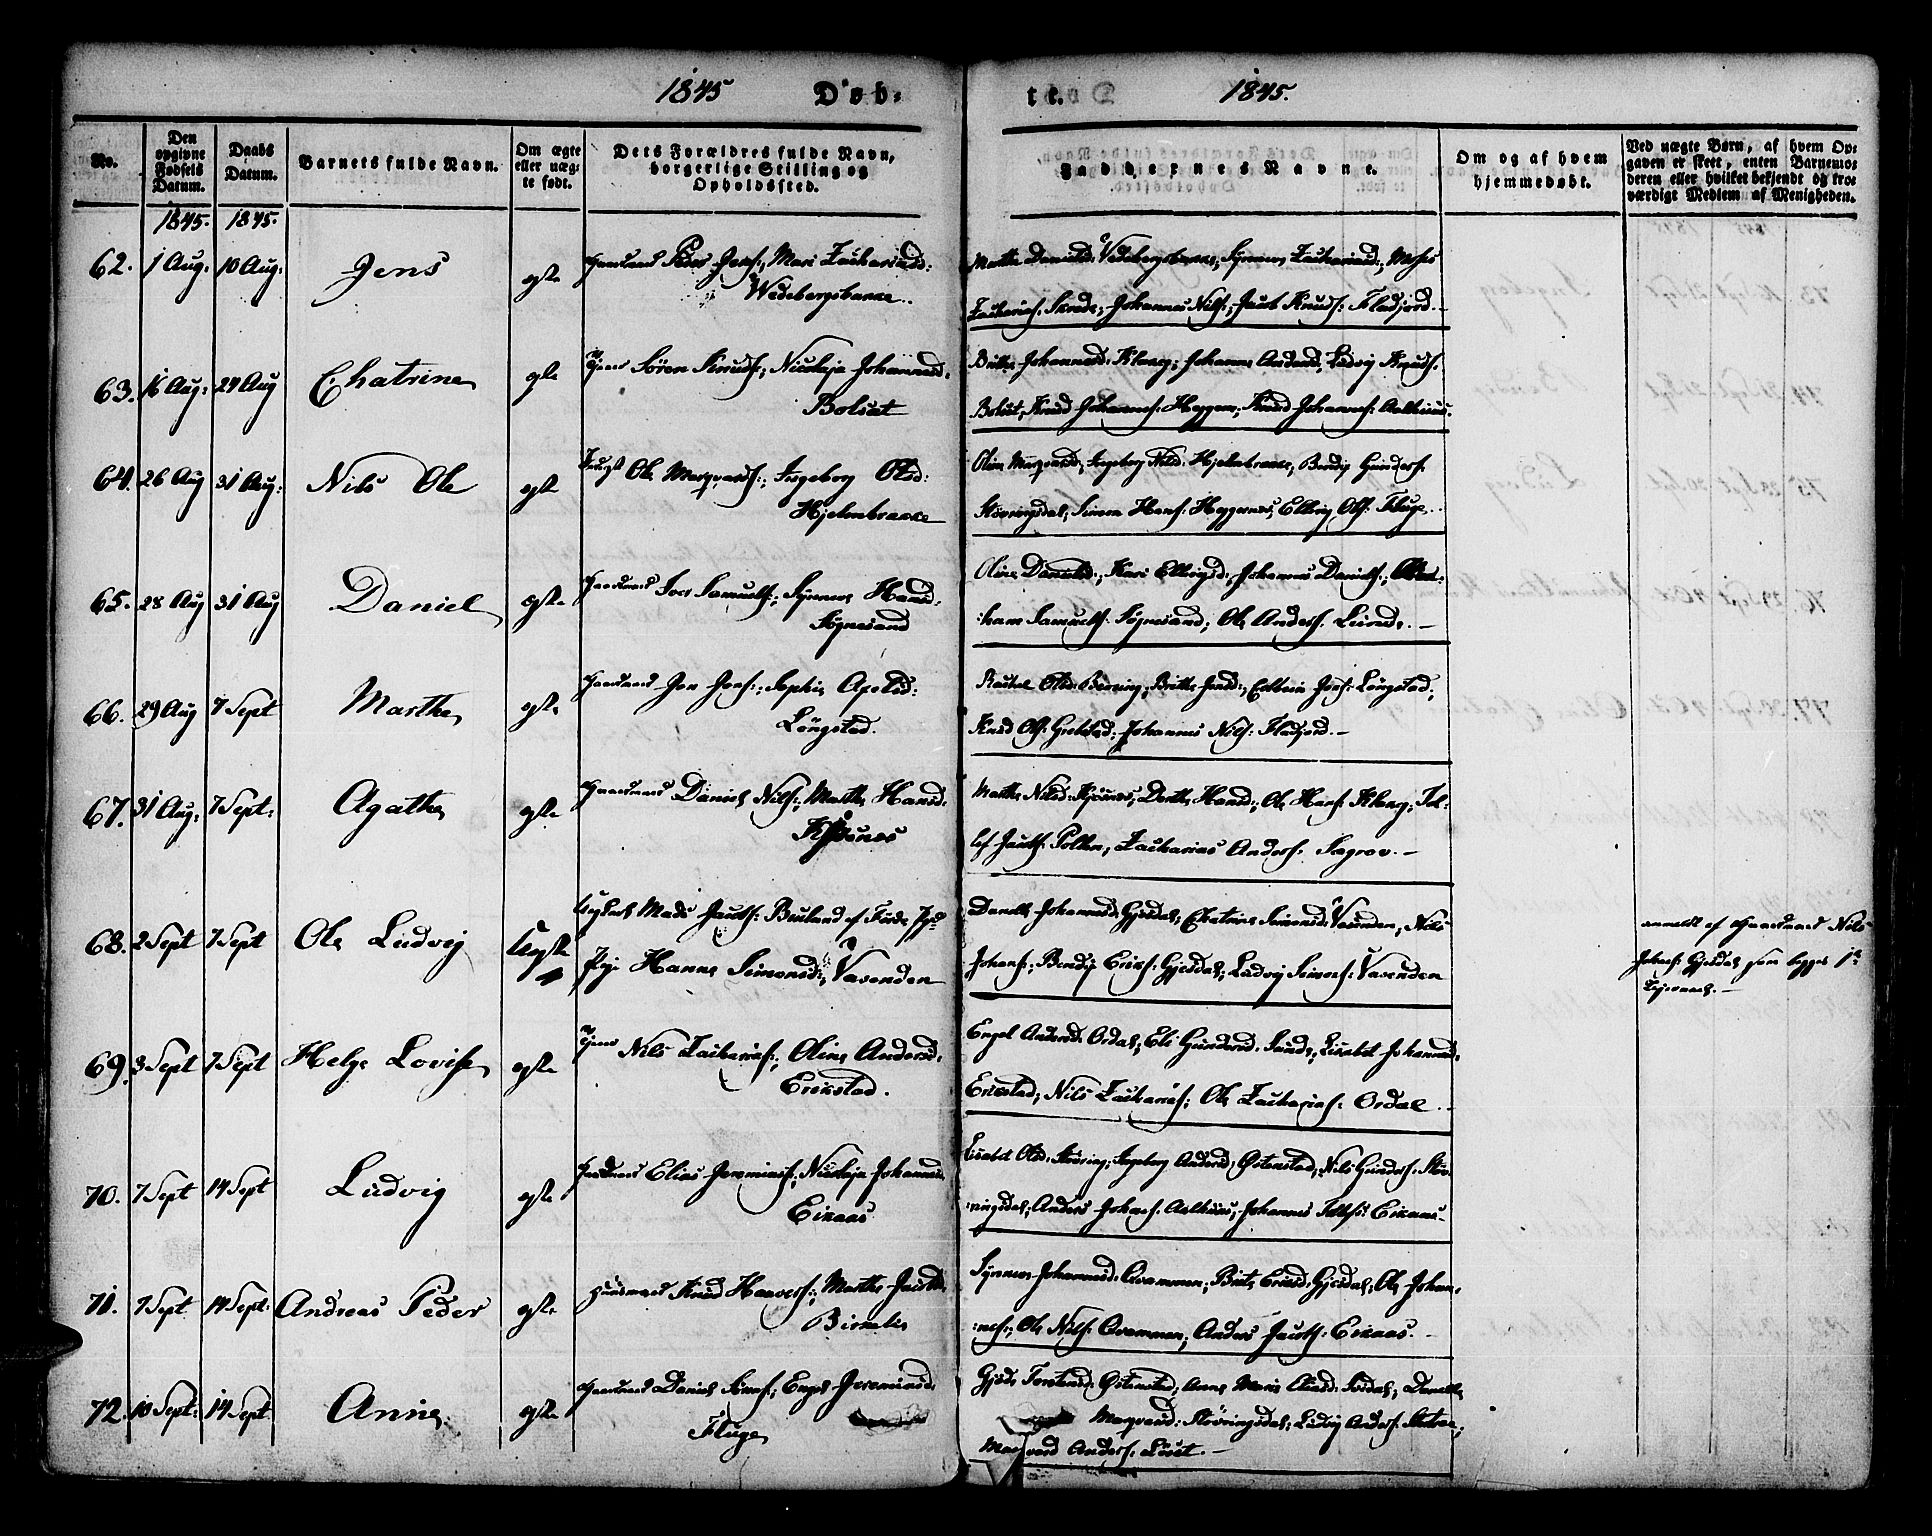 1845 Døb-
te. 1845.
No.
Den opgivne Fødsels Datum.
Daabs Datum.
Barnets fulde Navn.
Om ægte eller uægte født.
Dets Forældres fulde Navn, borgerlige Stilling og Opholdssted.
Faddernes Navne.
Om og af hvem hjemmedøbt.
Ved uægte Børn, af hvem Opgaven er skeet, enten Barnemoderen eller hvilket bekjendt og troværdigt Medlem af Menigheden.
1845. 1845.
62. 1 Aug: 10 Aug: Jens ægte Gaardmand Peder Jens:, Mari Zachariasd:
Wedebergsbakke.
Marthe Danielsd: Vedebergsbakke, Synneve Zachariasd:, Moses
Zacharias: Skrede, Johannes Nils:, Jacob Knuds: Fladjord.
63. 16 Aug: 24 Aug Chatrine ægte Søren Knuds:, Nicolaja Johannesd:
Bolsæt
Johannesd: Klævg; Johanne Andersd, Ludvig Knuds:
Bolsæt, Knud Johannes: Heggen, Knud Johannes: Aalhuus.
64. 26 Aug 31 Aug: Nils Ole ægte Ole Marqvards:, Ingeborg Olsd:
Hjelmbrække
Oline Marqvardsd, Ingeborg Nilsd: Hjelmbrække, Bendix Gunders:
Støvringsdal, Simon Hans: Heggenes, Elling Ols: Fluge.
65. 28 Aug 31 Aug Daniel ægte Gaardmand Iver Samuels:, Synneve Hansd:
Søgnesand
Oline Danielsd:, Kari Ellingsd:, Johannes Daniels:,
ham Samuels: Søgnesand, Ole Anders:
66. 29 Aug 7 Sept Marthe ægte Gaardmand Jon Jons:, Sophie Apelsd:
Løngstad.
Rachel Olsd: Bereing, Brithe Jonsd:, Jons: Løngstad,
Knud Ols: Grebstad, Johannes Nils: Fladjord.
67. 31 Aug: 7 Sept: Agathe ægte Gaardmand Daniel Nils:, Marthe Hansd:
Kjøsnes
Marthe Nilsd: Kjøsnes, Dorthe Hansd:, Ole Hans: Klævg, Tol-
lef Jacobs: Polden, Zacharias Anders: Sægrov.
68. 2 Sept 7 Sept Ole Ludvig Uægte Ugkarl Mads Jacobs: Bruland af Førde
Pige Hanne Simonsd:, Vasenden
Danelle Johannesd: Gjesdal, Chatrine Simonsd: Vasenden, Nils
Johans:, Bendix Eriks: Gjesdal, Ludvig Simons: Vasenden
anmeldt af Gaardmand Nils
Johans: Gjesdal som begges 1ste
Lejermaal.
69. 3 Sept 7 Sept Helge Lovise ægte Nils Zacharias:, Oline Andersd:
Erikstad.
Engel Andersd: Ordal, Eli Gundersd: Sunde, Lisabet Johannesd:
Erikstad, Nils Zacharias:, Ole Zacharias: Ordal.
70. 7 Sept 14 Sept Ludvig ægte Gaardmand Elias Jeremias:, Nicolaja Johannesd:
Eikaas
Lisabet Olsd: Støvring, Ingeborg Andersd, Østenstad, Nils Gunders: Støv-
ringsdal, Anders Johans: Aalhuus, Johannes Eikaas
71. 7 Sept 14 Sept: Andreas Peder ægte Huusmand Knud Haavors:, Marthe Jacobsd:
Birkelie
Synneve Johannesd: Qvammen, Brite Eriksd: Gjesdal, Ole Johan-
nes:, Ole Nils: Qvammen, Anders Jacobs: Eikaas.
72. 10 Sept: 14 Sept Anne ægte Gaardmand Daniel Simons:, Engel Jeremiasd:
Fluge
Gjøde Torstensd: Østenstad, Anne Marie Clausd: Sordal, Danelle
Marqvardsd: Støvringsdal, Ludvig Anders:
Marqvard Anders: Løset.